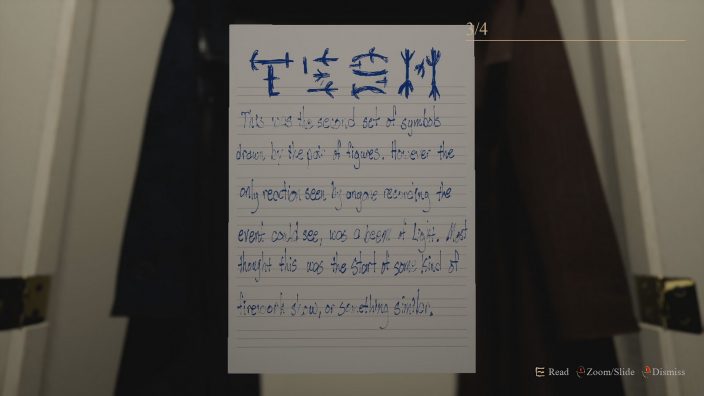 3/4
This was the second set of symbols
drawn by the pair of figures. However the
only reaction seen by anyone recording the
event could see, was a beam of light. Most
thought this was the start of some kind of
firework show, or something similar.
Read Zoom/Slide Dismiss